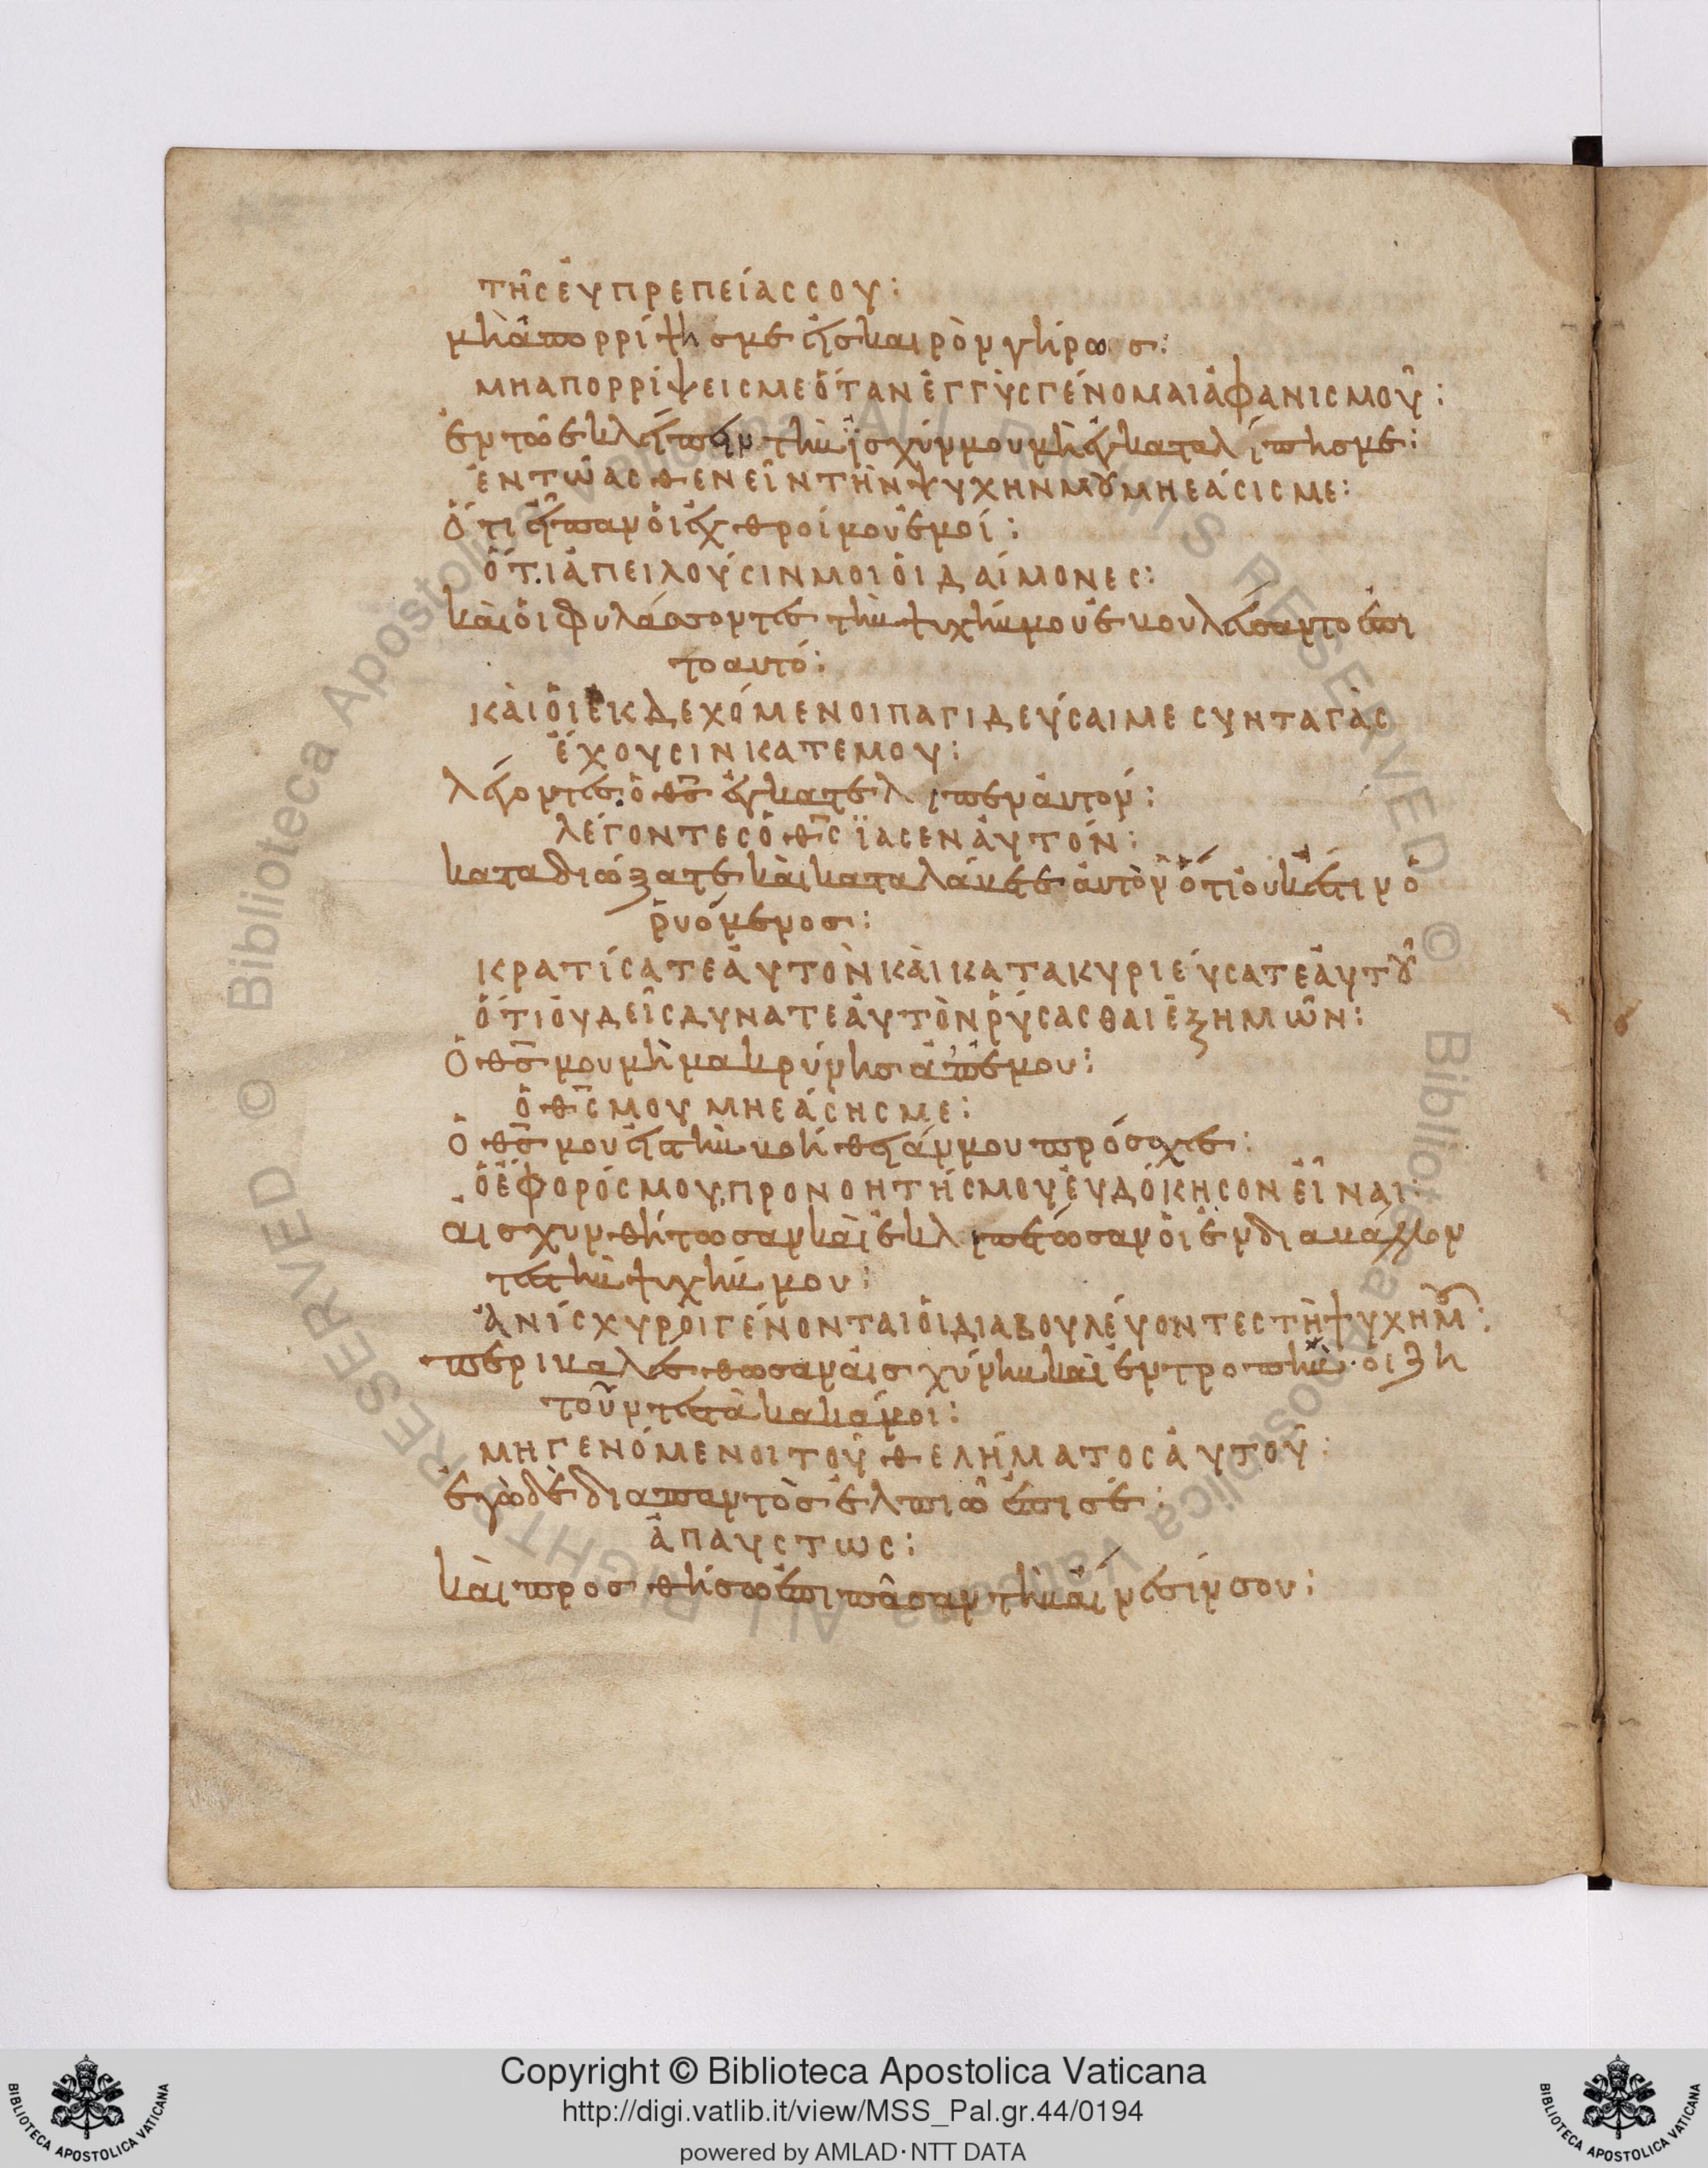 τῆς ἐυπρεπείας σου:
μὴ ἀπορρίψησμε εἰς καιρὸν γήρως:
μηαπορρίψεις με ὅταν ἐγγὺς γένομαι ἀφανισμοῦ:
ἐν τῶ ἐκλείπειν τὴν ἰσχύν μου μὴ ἐγκαταλίπησμε:
ἐν τῶ ἀσθενεῖν τὴν ψυχην μου μη εάσις με:
ὅτι εἶπαν ὁι ἐχθροί μου ἐμοί:
ὅτι ἀπειλούσιν μοι ὁι δαίμονες:
κὰι ὁι φυλάσσοντες τὴν ψυχήν μου ἐβουλέυσαντο ἐπι
το αυτό:
κὰι ὁι ἐκδεχόμενοι παγιδεύσαι με συνταγὰς
ἔχουσιν κατεμου:
λέγοντες. ὁ θς ἐγκατέλιπεν ἀυτον:
λέγοντες ὁ θς ϊασεν ἀυτόν:
καταδιώξατε κὰι καταλάβετε ἀυτὸν ὅτι ὀυκέστιν ὁ
ῥυόμενος:
κρατίσατε ἀυτὸν κὰι κατακυριεύσατε ἀυτου
ὅτι ὀυδεῖς δυνατε ἀυτὸν ῥύσασθαι ἐξ ημῶν:
Ὁ θς μου μὴ μακρύνης ἀπ' ἐμου:
ὁ θς μου μη εάσης με:
Ὁ θς μου εἰς τὴν βοήθειάν μου πρόσχες:
ὁ ἐφορός μου, προνοητής μου ἐυδόκησον εἶναι:
αισχυνθήτωσαν κὰι ἐκλιπέτωσαν ὁι ἐνδιαβάλλον
τες τὴν ψυχήν μου:
Ἀνίσχυροι γένονται ὁι διαβουλέυοντες τὴ ψυχη μου:
περιβαλέσθωσαν ἀισχύνην κὰι ἐντροπὴν. ὁι ζη
τοῦντες τὰ κακά μοι:
μη γενόμενοι τοῦ θελήματος ἀυτοῦ:
ἐγὼ δὲ διαπαντὸς ἐλπιῶ ἐπι σέ:
ἀπαυστως:
κὰι προσθήσω ἐπι πᾶσαν τὴν ἄινεσίν σου:
Copyright © Biblioteca Apostolica Vaticana
http://digi.vatlib.it/view/MSS_Pal.gr.44/0194
powered by AMLAD·NTT DATA
BIBLIOTECA APOSTOLICA VATICANA
BIBLIOTECA APOSTOLICA VATICANA
© Biblioteca Apostolica Vaticana ALL RIGHTS RESERVED
© Biblioteca Apostolica Vaticana ALL RIGHTS RESERVED